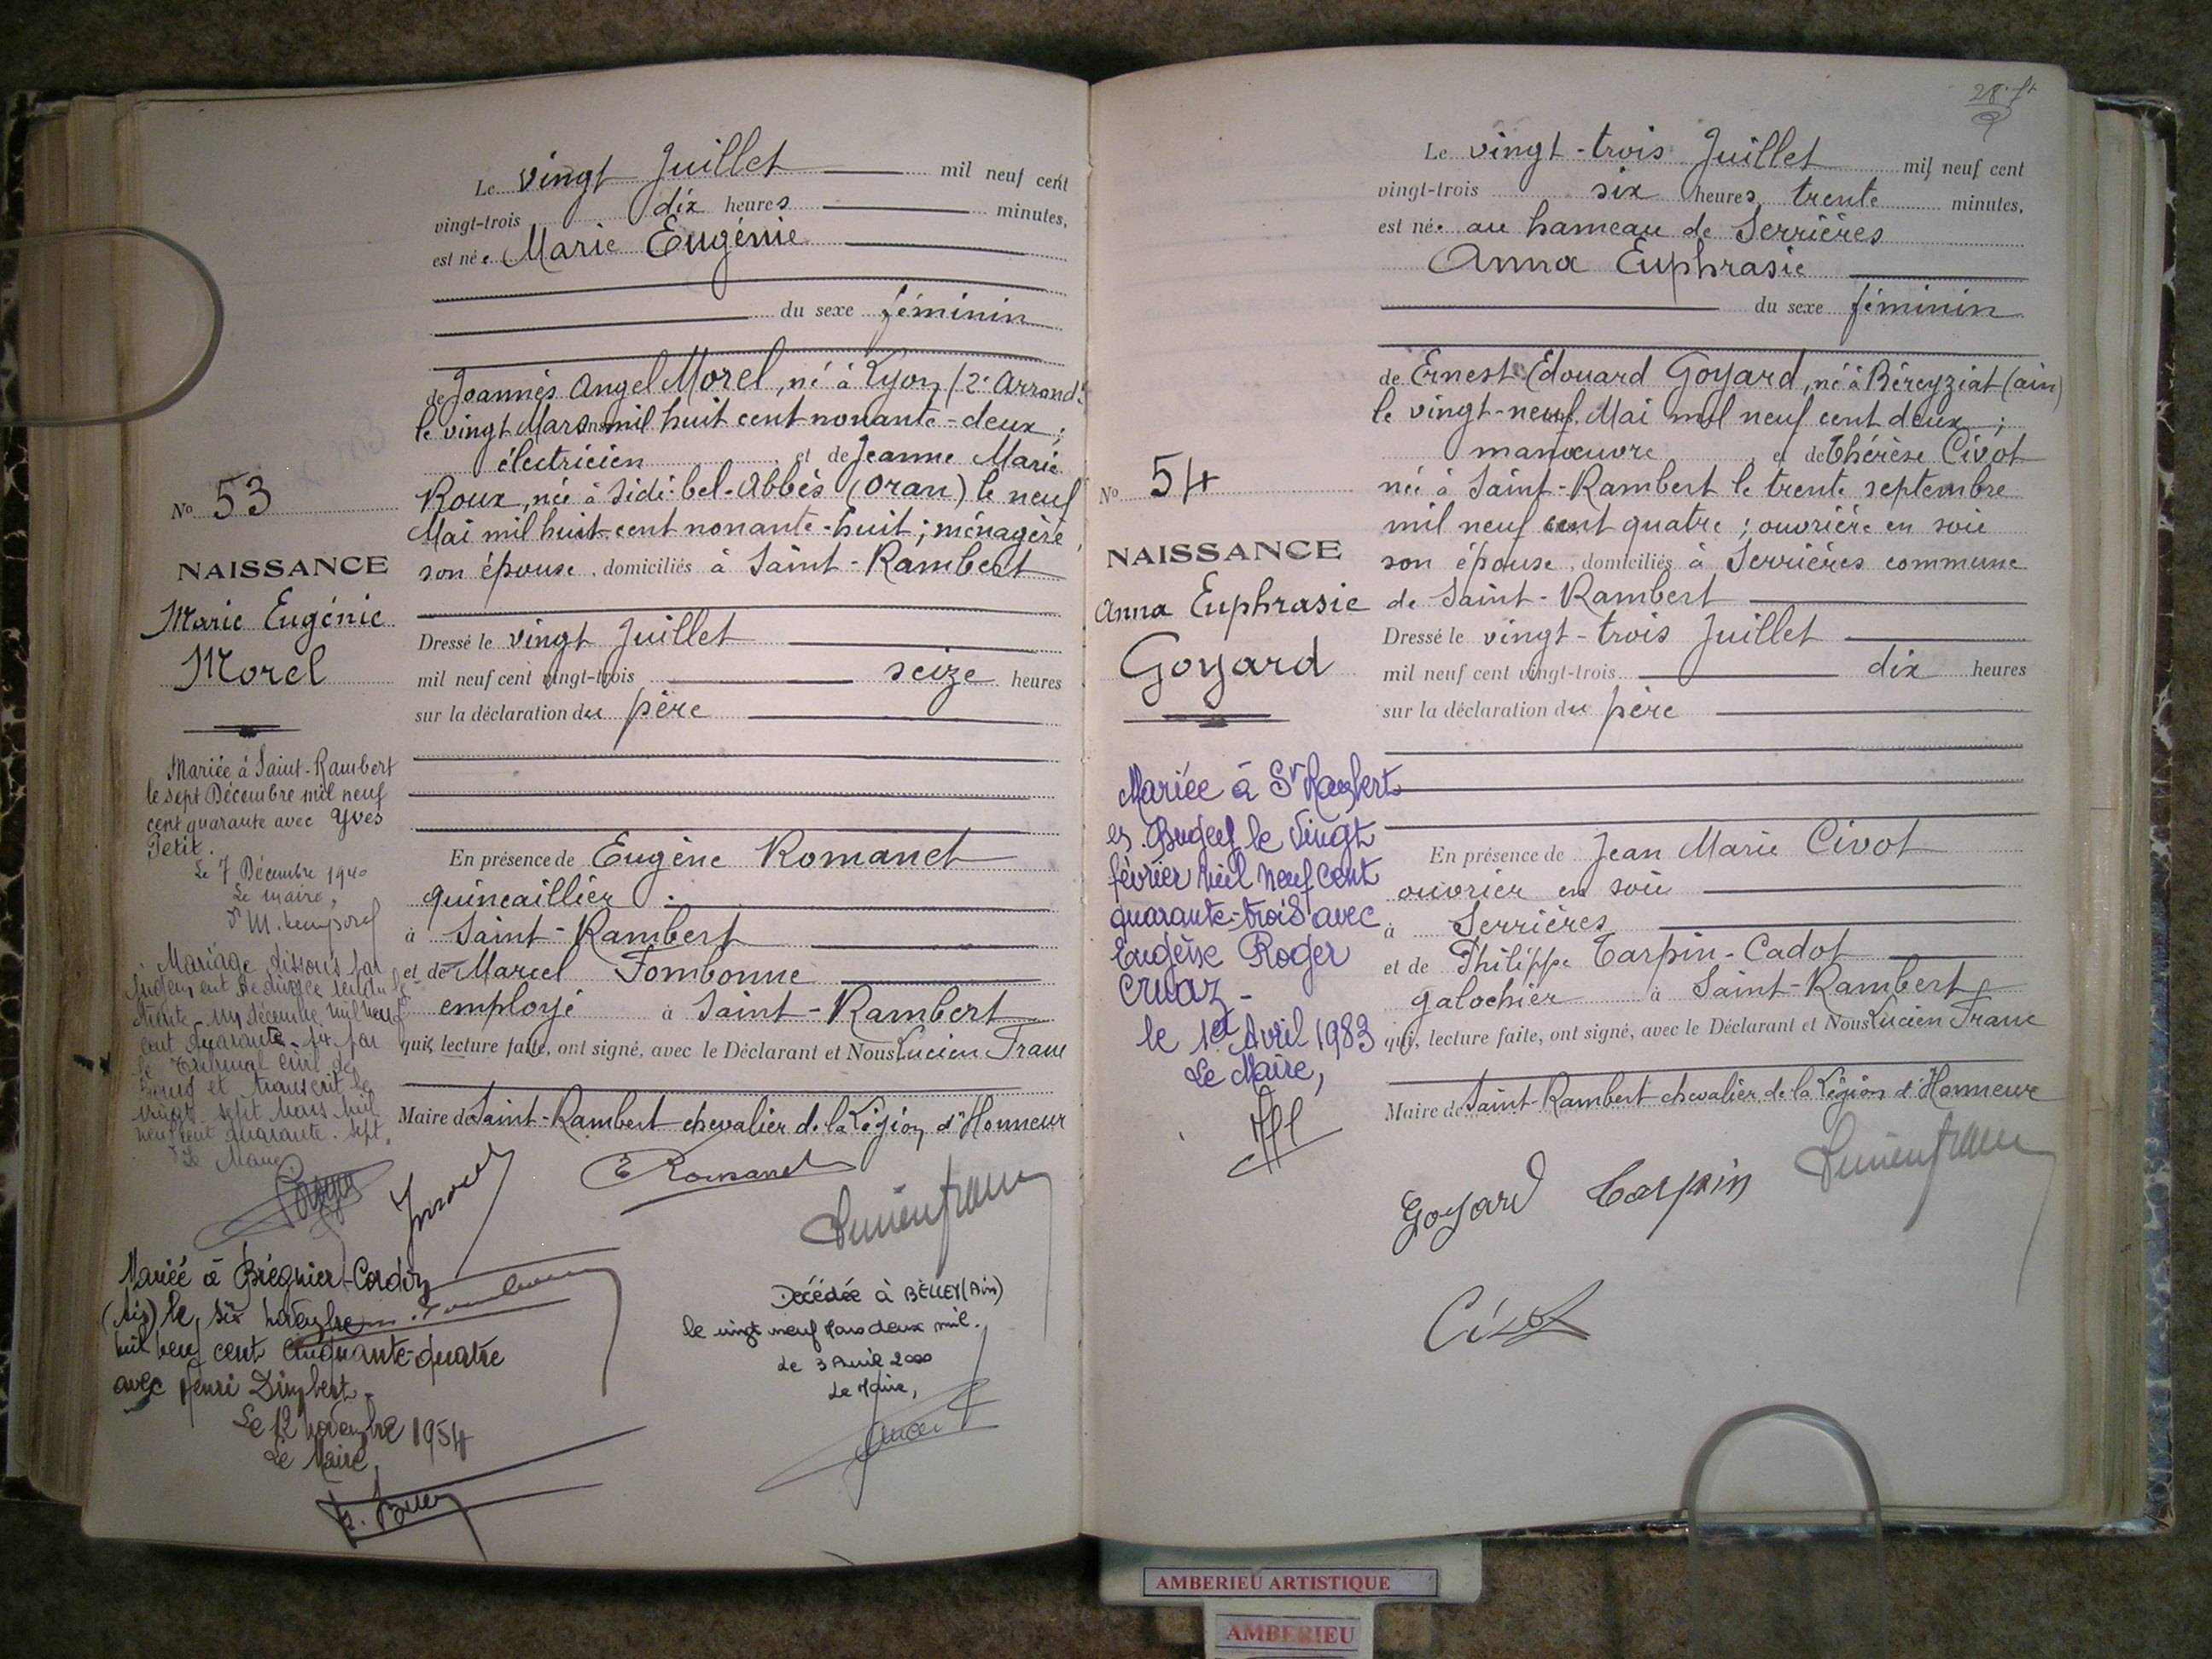 Le vingt Juillet mil neuf cent
vingt-trois dix heures minutes,
est née Marie Eugénie
du sexe féminin
de Joannès Angel Morel, né à Lyon (2e Arrondt
le vingt Mars mil huit cent nonante-deux;
électricien et de Jeanne Marie
Roux, née à Sidi-bel-Abbès (Oran) le neuf
Mai mil huit cent nonante-huit; ménagère,
son épouse, domiciliés à Saint-Rambert
Dressé le vingt Juillet
mil neuf cent vingt-trois seize heures
sur la déclaration du père
En présence de Eugène Romanet
quincaillier
à Saint-Rambert
et de Marcel Fombonne
employé à Saint-Rambert
qui, lecture faite, ont signé, avec le Déclarant et Nous Lucien Franc
Maire de Saint-Rambert chevalier de la Légion d'Honneur
No 53
NAISSANCE
Marie Eugénie
Morel
Mariée à Saint-Rambert
le sept Décembre mil neuf
cent quarante avec Yves
Petit.
Le 7 Décembre 1940
Le maire,
Mariage dissous par
jugement de divorce rendu le
trente un décembre mil neuf
cent quarante-six par
le Tribunal civil de
Bourg et transcrit le
vingt sept mars mil
neuf cent quarante-sept.
Le Maire
Morel
E Romanet
Lucien Franc
Mariée à Brégnier-Cordon
(Ain) le six novembre
mil neuf cent cinquante-quatre
avec Henri Dimbert.
Le 12 novembre 1954
Le Maire,
Décédée à BELLEY (Ain)
le vingt neuf Mars deux mil.
Le 3 Avril 2000
Le Maire,
Le vingt-trois Juillet mil neuf cent
vingt-trois six heures trente minutes,
est née au hameau de Serrières
Anna Euphrasie
du sexe féminin
de Ernest Edouard Goyard, né à Béreyziat (ain)
le vingt-neuf Mai mil neuf cent deux;
manœuvre et de Thérèse Civot
née à Saint-Rambert le trente septembre
mil neuf cent quatre; ouvrière en soie
son épouse, domiciliés à Serrières commune
de Saint-Rambert
Dressé le vingt-trois Juillet
mil neuf cent vingt-trois dix heures
sur la déclaration du père
En présence de Jean Marie Civot
ouvrier en soie
à Serrières
et de Philippe Tarpin-Cadot
galochier à Saint-Rambert
qui, lecture faite, ont signé, avec le Déclarant et Nous Lucien Franc
Maire de Saint-Rambert chevalier de la Légion d'Honneur
No 54
NAISSANCE
Anna Euphrasie
Goyard
Mariée à St Rambert
en Bugey le vingt
février mil neuf cent
quarante-trois avec
Eugène Roger
Cruaz -
le 1er Avril 1983
Le Maire,
Goyard Tarpin Lucien Franc
Civot
AMBERIEU ARTISTIQUE
AMBERIEU